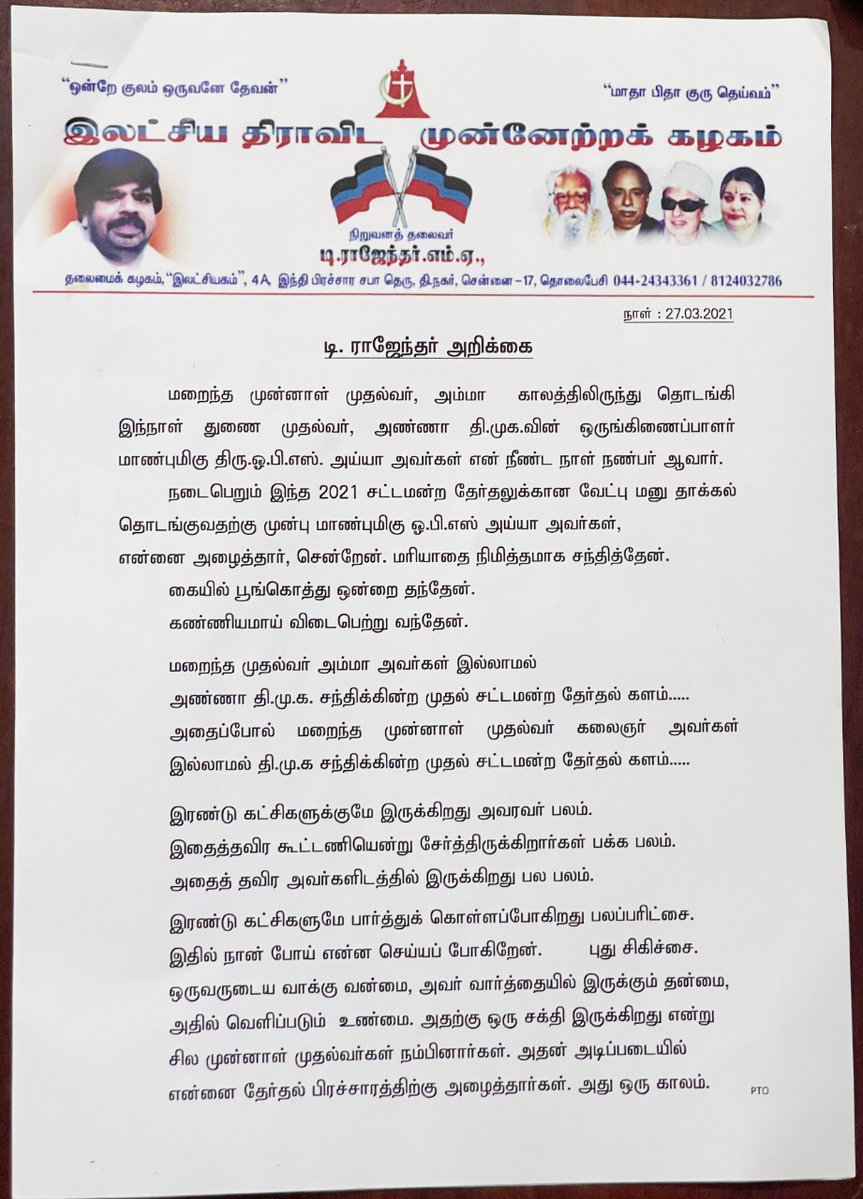 “ஒன்றே குலம் ஒருவனே தேவன்”
“மாதா பிதா குரு தெய்வம்”
இலட்சிய திராவிட முன்னேற்றக் கழகம்
நிறுவனத் தலைவர்
டி.ராஜேந்தர்.எம்.ஏ.,
தலைமைக் கழகம்,“இலட்சியகம்”, 4A, இந்தி பிரச்சார சபா தெரு, தி.நகர், சென்னை–17, தொலைபேசி 044-24343361 / 8124032786
நாள் : 27.03.2021
டி. ராஜேந்தர் அறிக்கை
மறைந்த முன்னாள் முதல்வர், அம்மா காலத்திலிருந்து தொடங்கி
இந்நாள் துணை முதல்வர், அண்ணா தி.முக.வின் ஒருங்கிணைப்பாளர்
மாண்புமிகு திரு.ஓ.பி.எஸ். அய்யா அவர்கள் என் நீண்ட நாள் நண்பர் ஆவார்.
நடைபெறும் இந்த 2021 சட்டமன்ற தேர்தலுக்கான வேட்பு மனு தாக்கல்
தொடங்குவதற்கு முன்பு மாண்புமிகு ஓ.பி.எஸ் அய்யா அவர்கள்,
என்னை அழைத்தார், சென்றேன். மரியாதை நிமித்தமாக சந்தித்தேன்.
கையில் பூங்கொத்து ஒன்றை தந்தேன்.
கண்ணியமாய் விடைபெற்று வந்தேன்.
மறைந்த முதல்வர் அம்மா அவர்கள் இல்லாமல்
அண்ணா தி.மு.க. சந்திக்கின்ற முதல் சட்டமன்ற தேர்தல் களம்.....
அதைப்போல் மறைந்த முன்னாள் முதல்வர் கலைஞர் அவர்கள்
இல்லாமல் தி.மு.க சந்திக்கின்ற முதல் சட்டமன்ற தேர்தல் களம்.....
இரண்டு கட்சிகளுக்குமே இருக்கிறது அவரவர் பலம்.
இதைத்தவிர கூட்டணியென்று சேர்த்திருக்கிறார்கள் பக்க பலம்.
அதைத் தவிர அவர்களிடத்தில் இருக்கிறது பல பலம்.
இரண்டு கட்சிகளுமே பார்த்துக் கொள்ளப்போகிறது பலப்பரிட்சை.
இதில் நான் போய் என்ன செய்யப் போகிறேன். புது சிகிச்சை.
ஒருவருடைய வாக்கு வன்மை, அவர் வார்த்தையில் இருக்கும் தன்மை,
அதில் வெளிப்படும் உண்மை. அதற்கு ஒரு சக்தி இருக்கிறது என்று
சில முன்னாள் முதல்வர்கள் நம்பினார்கள். அதன் அடிப்படையில்
என்னை தேர்தல் பிரச்சாரத்திற்கு அழைத்தார்கள். அது ஒரு காலம்.
PTO